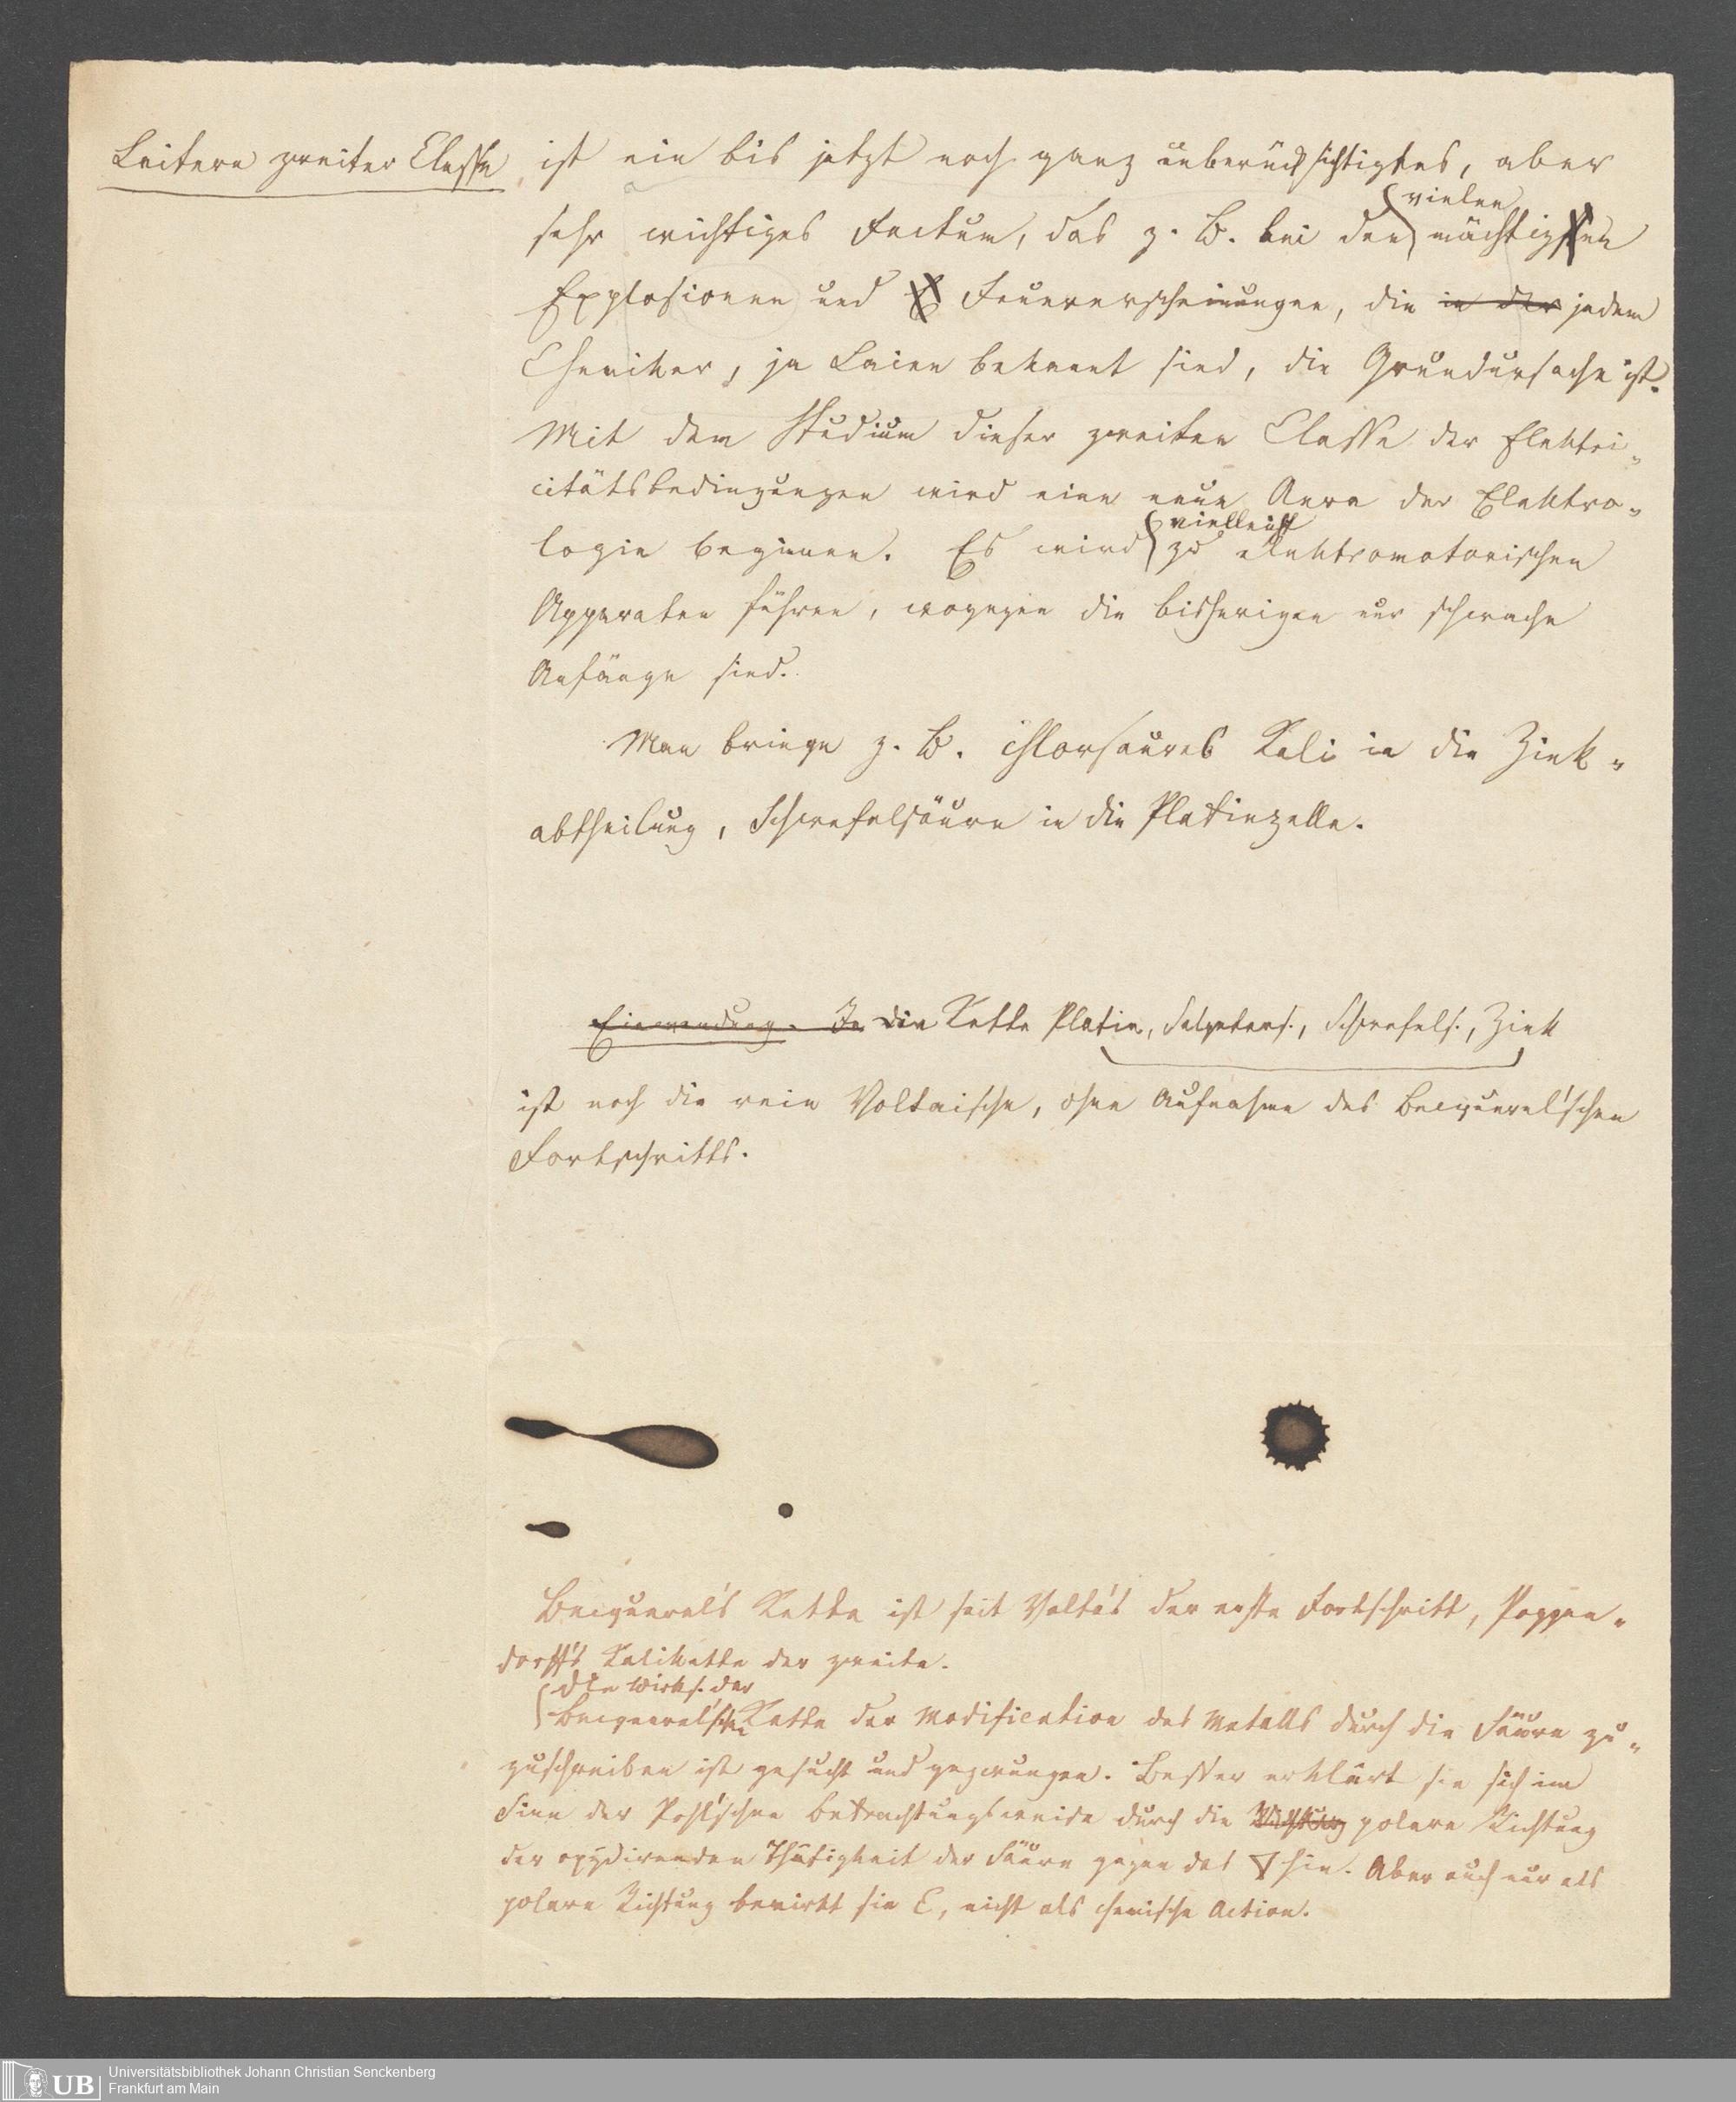 Leitern zweiter Classe ist ein bis jetzt noch ganz unberücksichtigtes, aber
vielen
sehr wichtiges Factum, das z. B. bei den mächtigen
Explosionen und Feuererscheinungen, die in der jedem
Chemiker, ja Laien bekannt sind, die Grundursache ist.
Mit dem Studium dieser zweiten Classe der Elektri-
citätsbedingungen wird eine neue Aera der Elektro-
vielleicht
logie beginnen. Es wird zu elektromotorischen
Apparaten führen, wogegen die bisherigen nur schwache
Anfänge sind.
Man bringe z. B. chlorsaures Kali in die Zink-
abtheilung, Schwefelsäure in die Platinzelle.
Einwendung. In die Kette Platin, Salpeters., Schwefels., Zink
ist noch die rein Voltaische, ohne Aufnahme des Becquerel'schen
Fortschritts.
Becquerel's Kette ist seit Volta's der erste Fortschritt, Poggen-
dorff's Kalikette der zweite.
Die Wirks. der
Becquerel'schen Kette der Modification des Metalls durch die Säure zu-
zuschreiben ist gesucht und gezwungen. Besser erklärt sie sich im
Sinn der Pohl'schen Betrachtungsweise durch die Richtung polare Richtung
der oxydirenden Thätigkeit der Säure gegen das ▽ hin. Aber auch nur als
polare Richtung bewirkt sie E, nicht als chemische Action.
UB Universitätsbibliothek Johann Christian Senckenberg
Frankfurt am Main